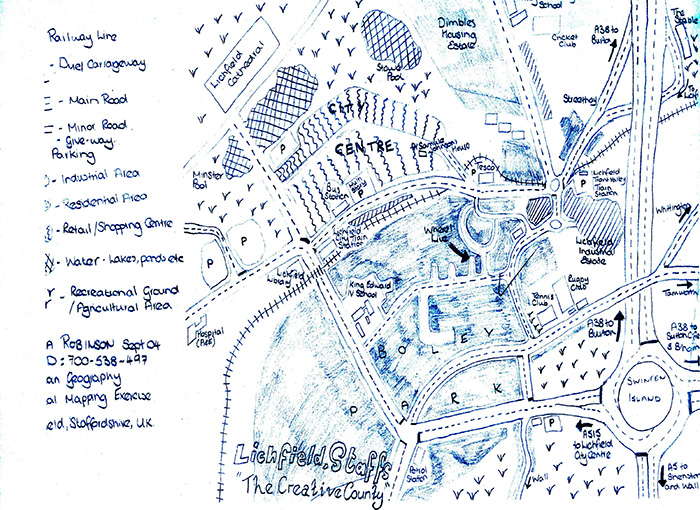 Railway Line
- Duel Carriageway
- Main Road
- Minor Road
- Give-way
Parking
- Industrial Area
- Residential Area
- Retail/Shopping Centre
- Water - Lakes, ponds etc
- Recreational Ground
/Agricultural Area
A ROBINSON Sept 04
D: 700-538-497
an Geography
al Mapping Exercise
eld, Staffordshire, UK
Lichfield
Cathedral
Stowe
Pool
Minster
Pool
CITY
CENTRE
P
Bus
Station
Lichfield
City Train
Station
Lichfield
Library
P
P
Hospital
(A&E)
King Edward
IV School
Where I
Live
BOLEY
PARK
P
Dimbles
Housing
Estate
School
Cricket
Club
A38 to
Burton
Streethay
The
Stables
P
Tesco
Lichfield
Trent Valley
Train
Station
P
Lichfield
Industrial
Estate
Rugby
Club
Tennis
Club
Whittington
Tamworth
A38 to
Burton
A38 to
Sutton
SWINFEN
ISLAND
P
A515
to Lichfield
City Centre
A5 to
Shenstone
and Wall
Wall
Petrol
Station
Lichfield, Staffs
"The Creative County"